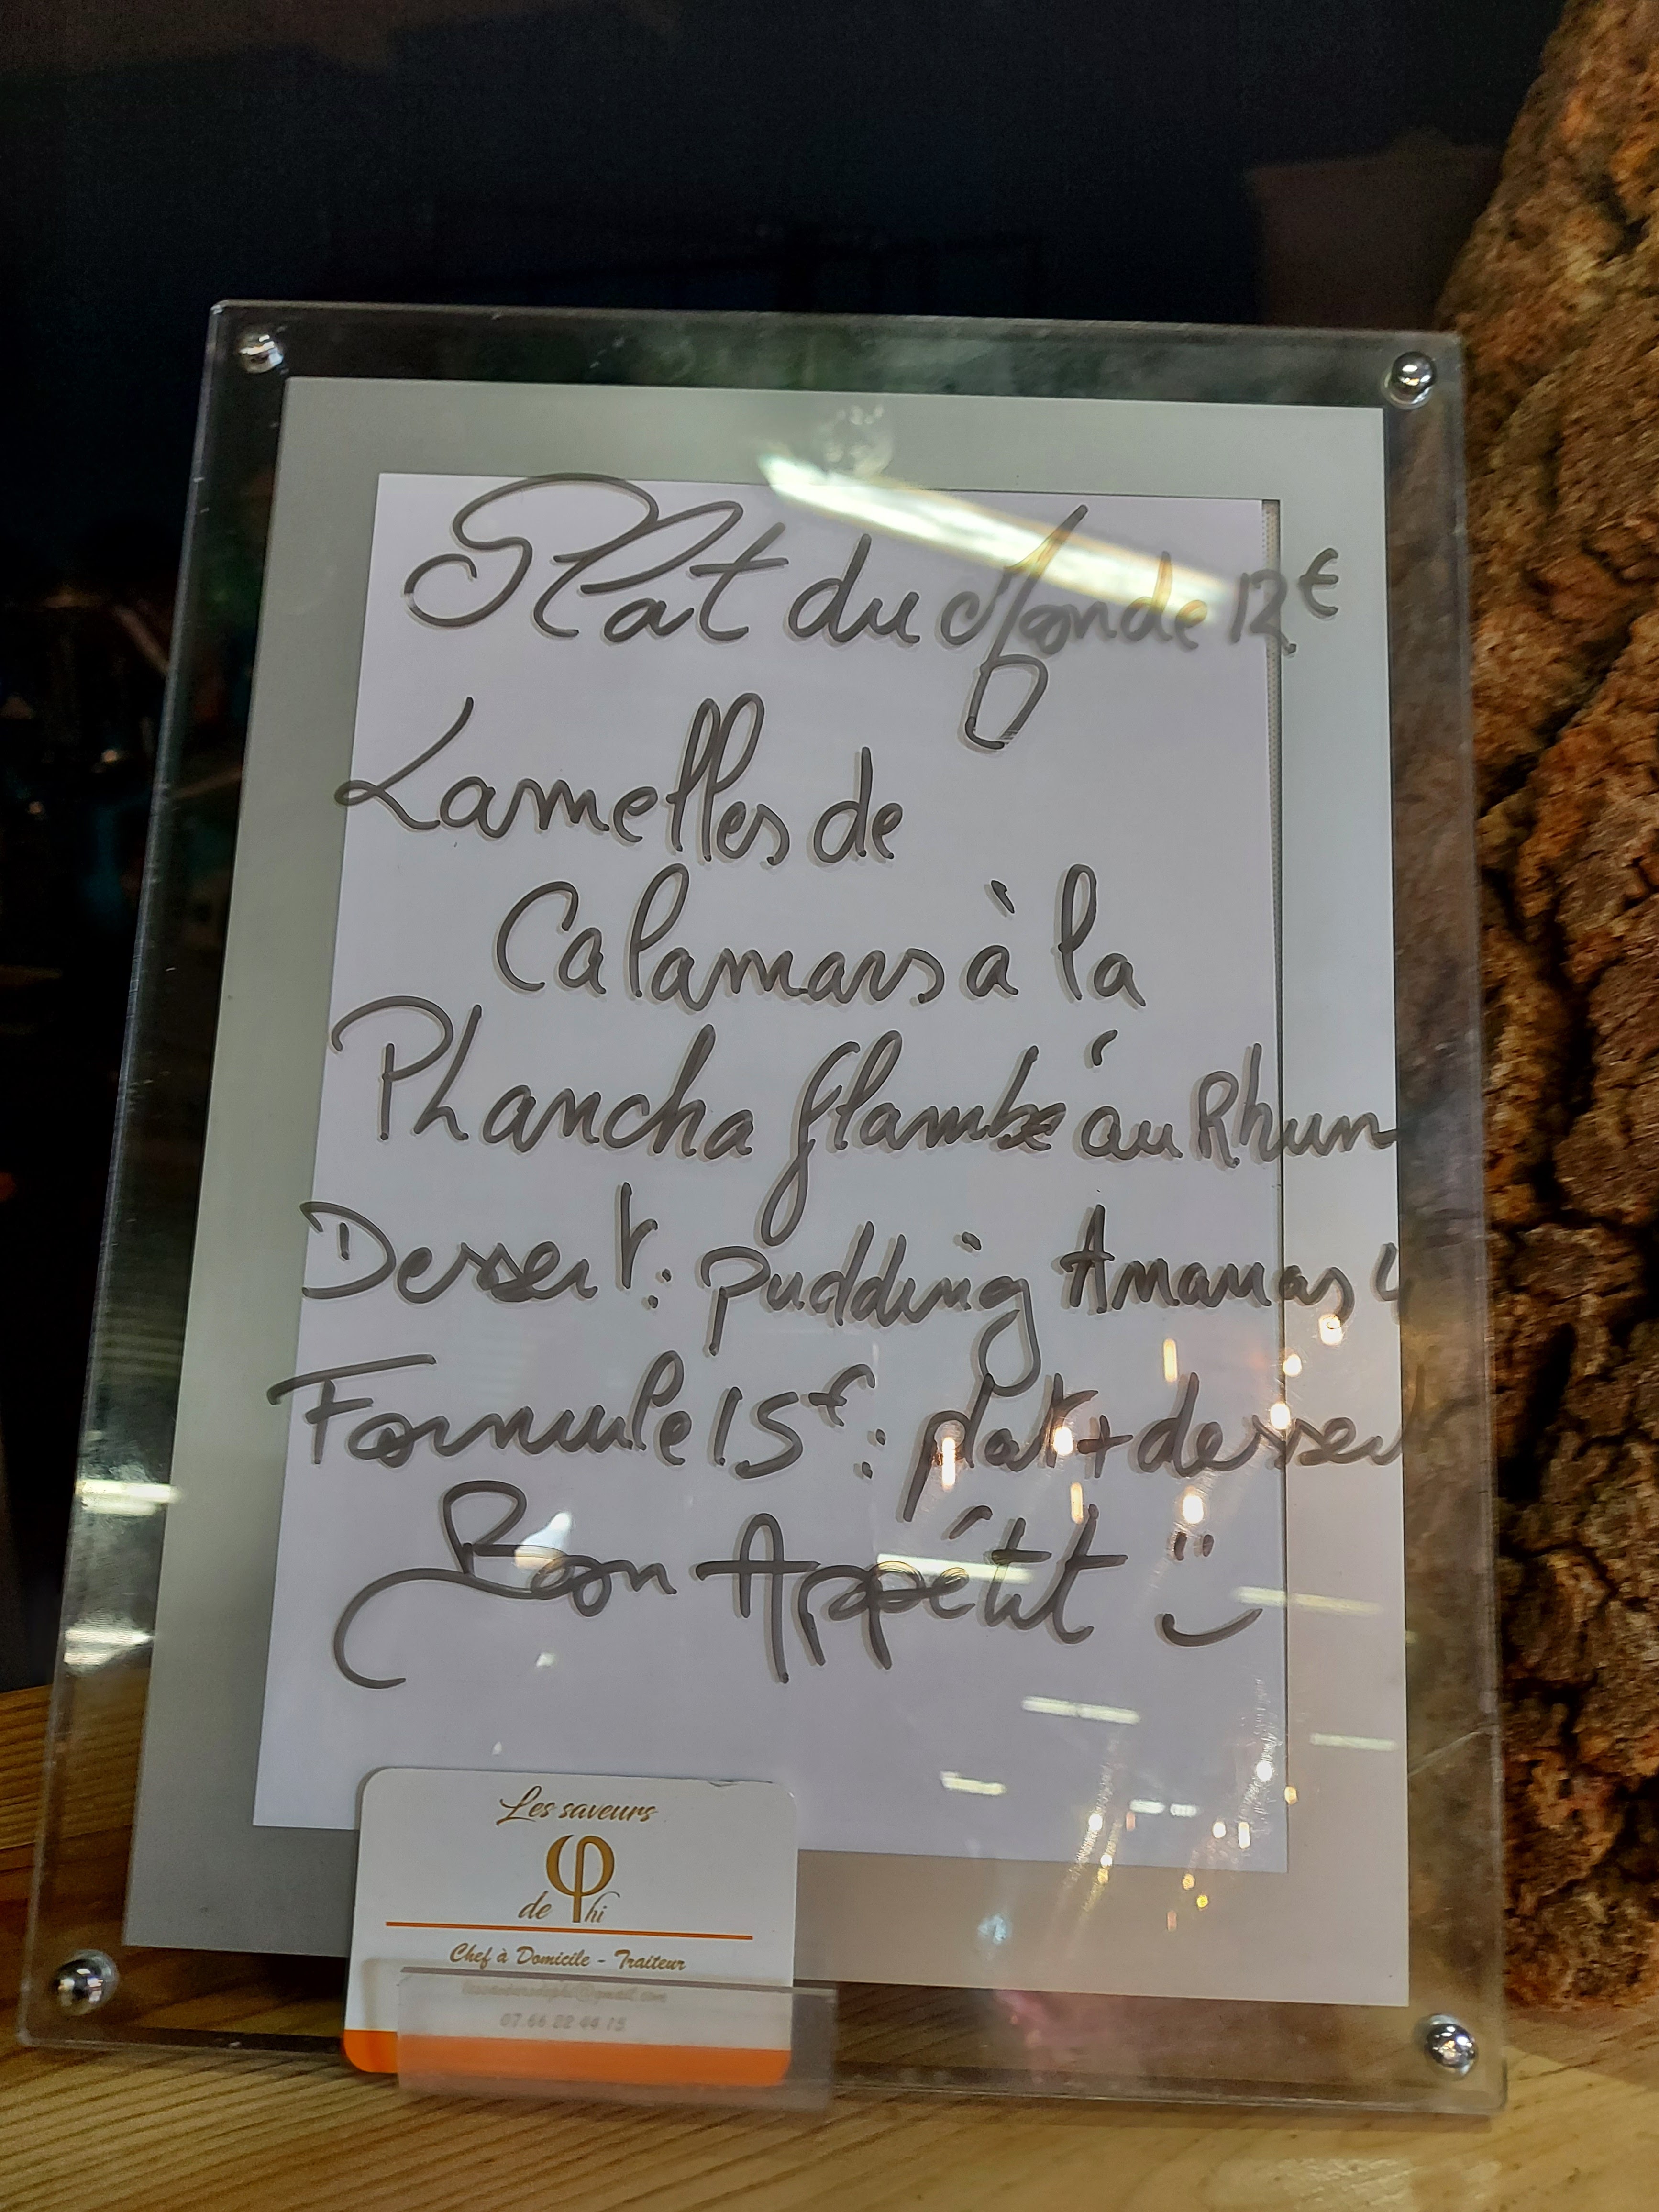 Plat du Monde 12€
Lamelles de
Calamars à la
Plancha flambé au Rhum
Dessert : pudding Ananas 4
Formule 15€ : plat + dessert
Bon Appétit
Les saveurs
de Phi
Chef à Domicile - Traiteur
07 66 22 44 15